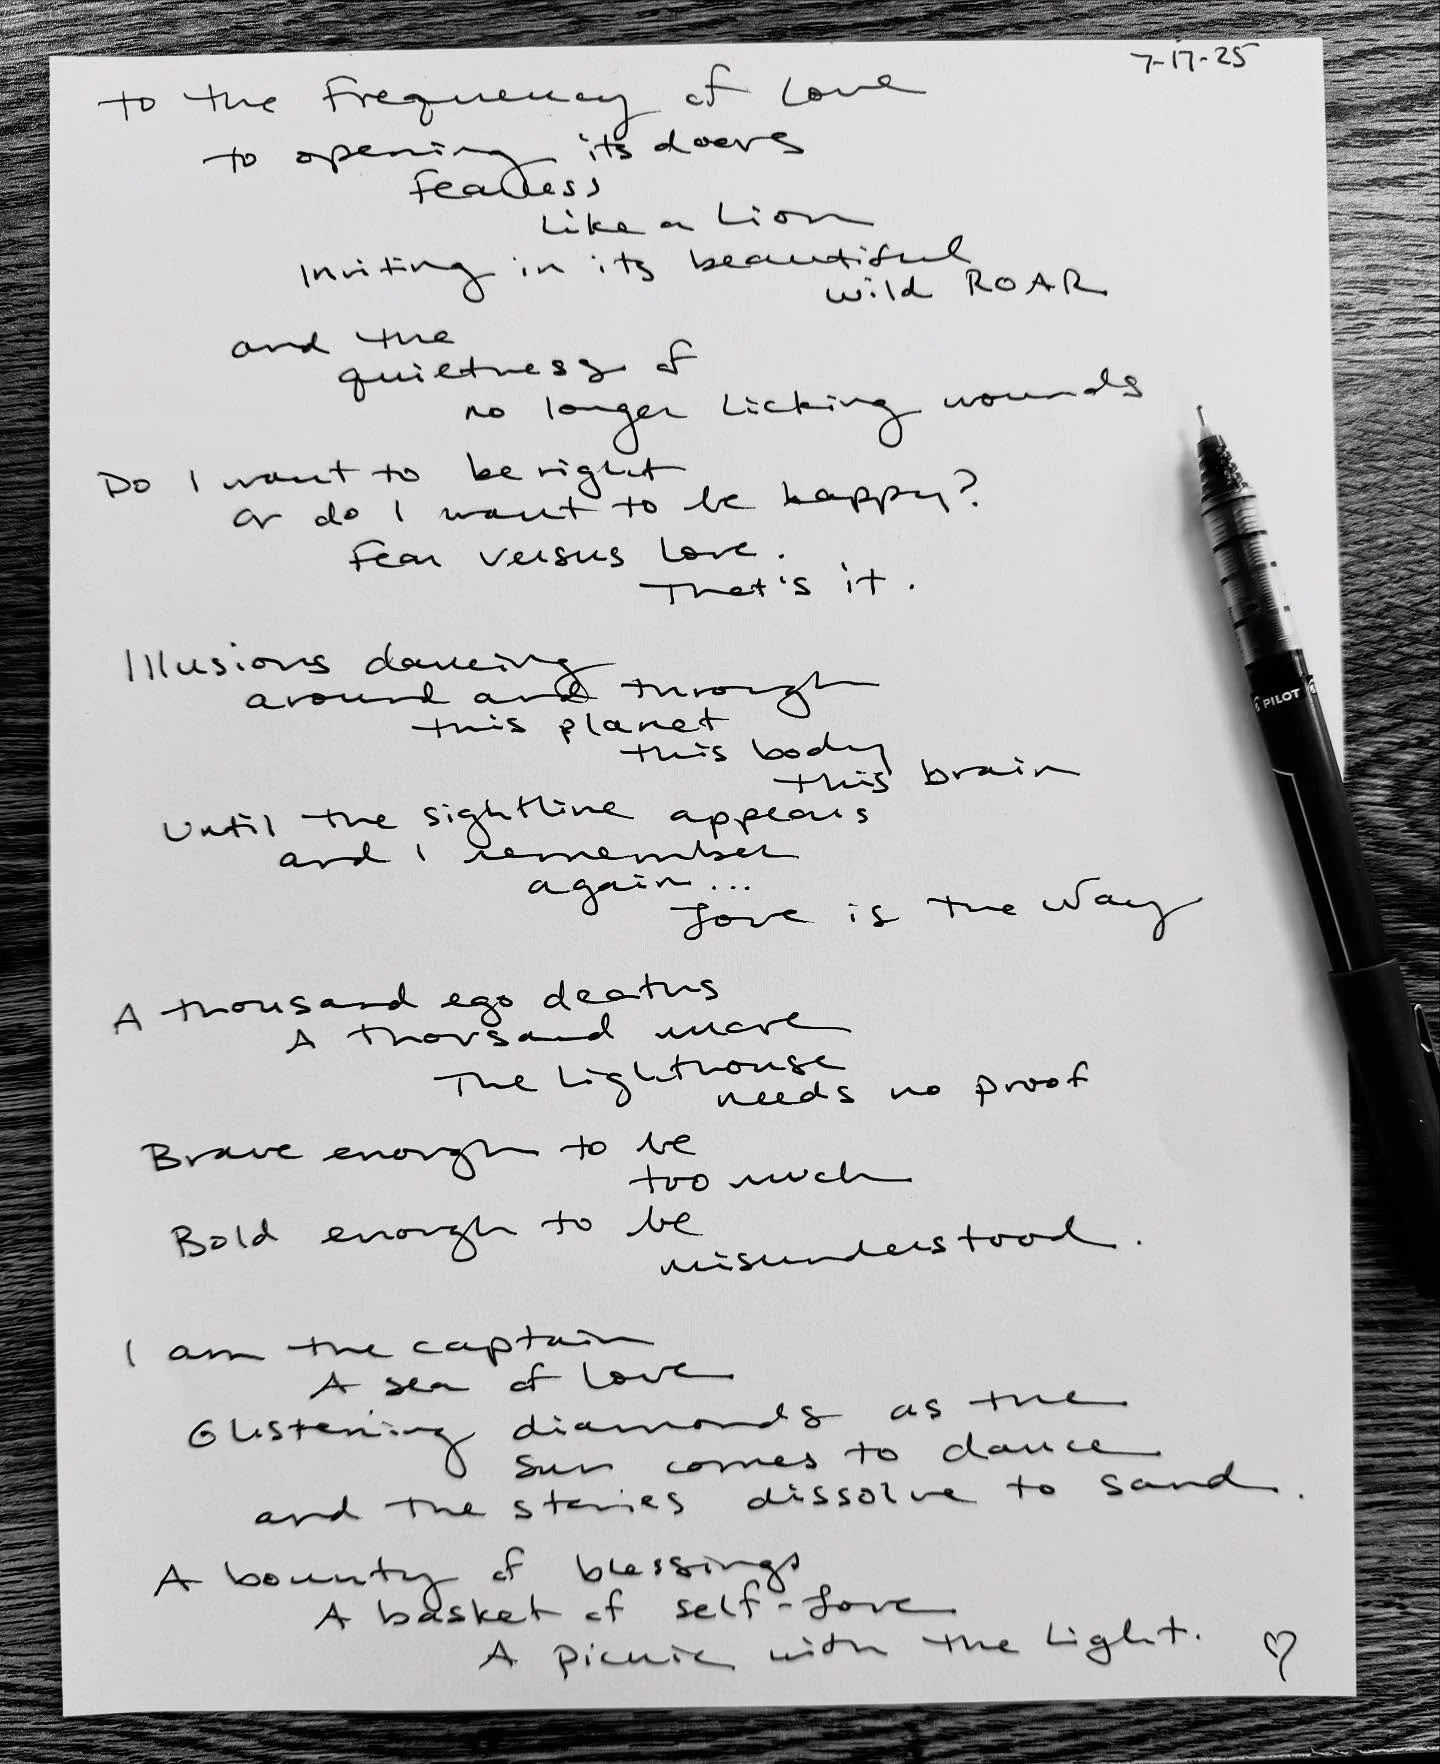 7-17-25
To the Frequency of Love
to opening its doors
fearless
Like a Lion
Inviting in its beautiful
wild ROAR
and the
quietness of
no longer Licking wounds
Do I want to be right
or do I want to be happy?
Fear versus Love.
That's it.
Illusions dancing
around and through
this planet
this body
this brain
Until the sightline appears
and I remember
again...
Love is the Way
A thousand ego deaths
A thousand more
The Lighthouse
needs no proof
Brave enough to be
too much
Bold enough to be
misunderstood.
I am the captain
A sea of Love
Glistening diamonds as the
sun comes to dance
and the stories dissolve to sand.
A bounty of blessings
A basket of self-Love
A picnic with the Light.
PILOT